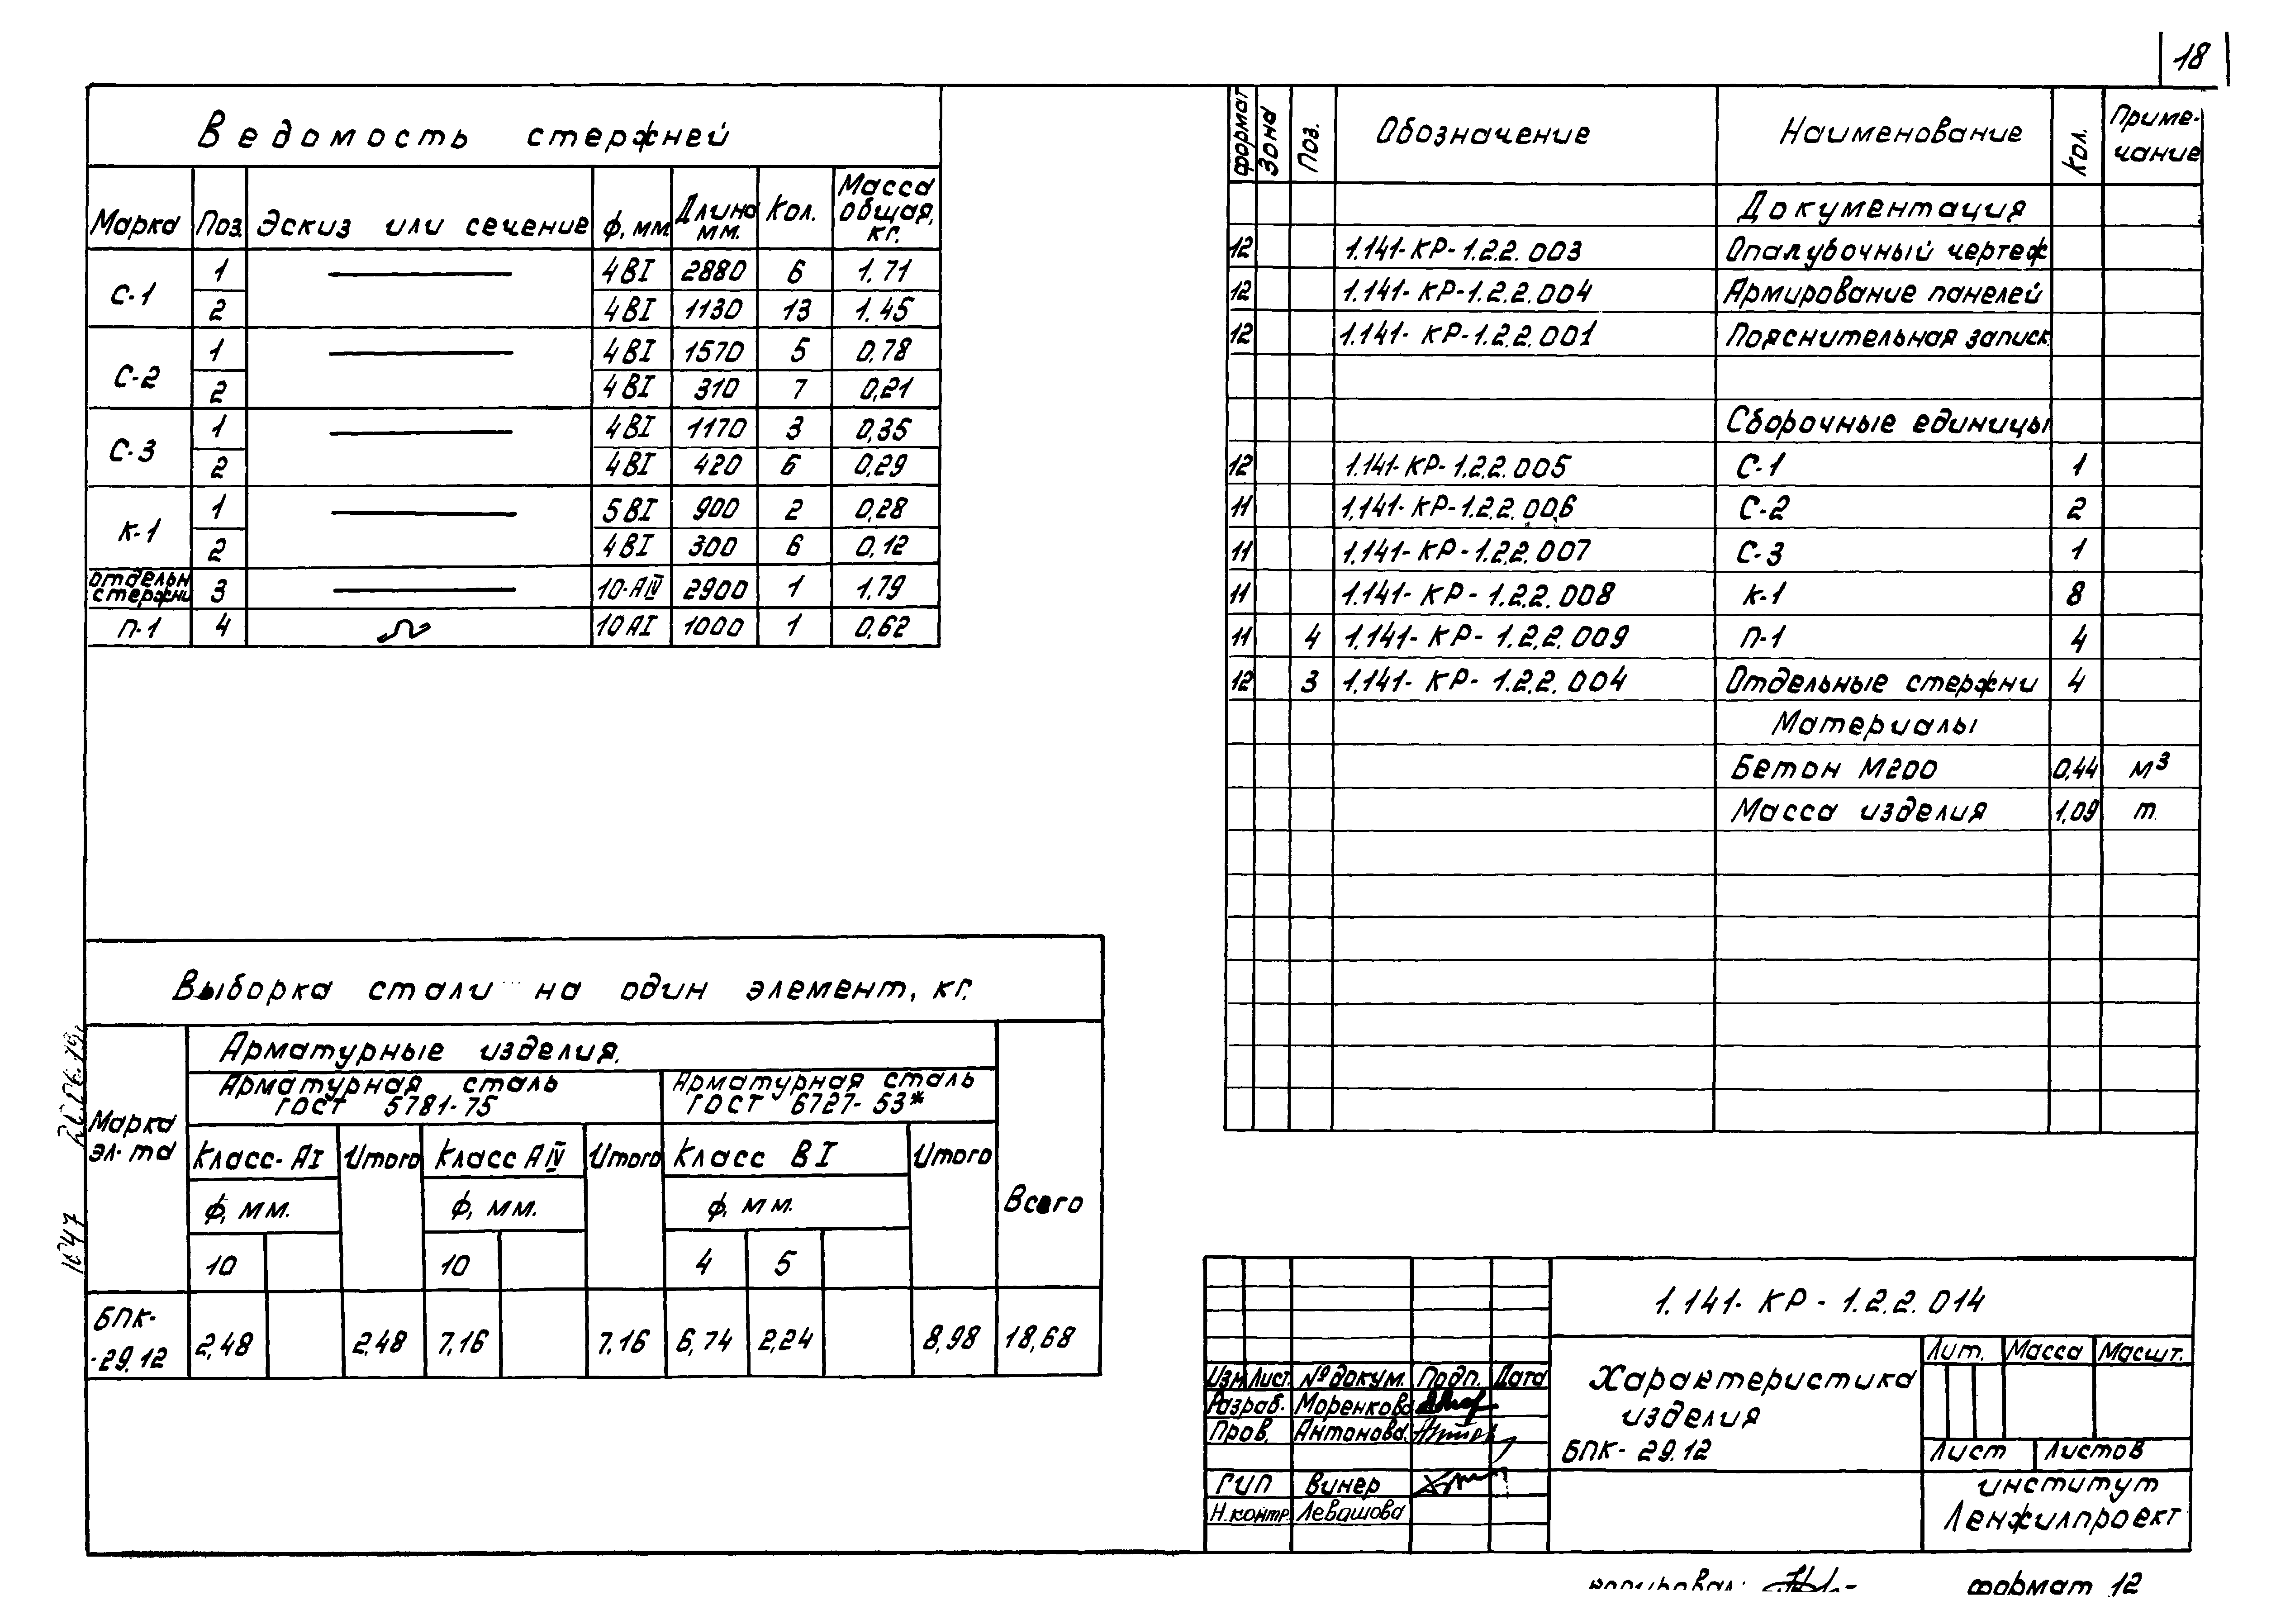 18
Ведомость стержней
Марка Поз. Эскиз или сечение ф, мм. Длина мм. Кол. Масса общая, кг.
С-1 1 4ВI 2880 6 1.71
2 4ВI 1130 13 1.45
С-2 1 4ВI 1570 5 0,78
2 4ВI 310 7 0,21
С-3 1 4ВI 1170 3 0,35
2 4ВI 420 6 0,29
К-1 1 5ВI 900 2 0,28
2 4ВI 300 6 0,12
отдельн стержни 3 10-АIV 2900 1 1,79
П-1 4 10АI 1000 1 0,62
формат Зона Поз. Обозначение Наименование Кол. Приме-чание
Документация
12 1.141-КР-1.2.2.003 Опалубочный чертеж
12 1.141-КР-1.2.2.004 Армирование панелей
12 1.141-КР-1.2.2.001 Пояснительная записк.
Сборочные единицы
12 1.141-КР-1.2.2.005 С-1 1
11 1.141-КР-1.2.2.006 С-2 2
11 1.141-КР-1.2.2.007 С-3 1
11 1.141-КР-1.2.2.008 К-1 8
11 4 1.141-КР-1.2.2.009 П-1 4
12 3 1.141-КР-1.2.2.004 Отдельные стержни 4
Материалы
Бетон М200 0,44 м³
Масса изделия 1,09 т.
Выборка стали на один элемент, кг.
Марка эл-та
Арматурные изделия.
Арматурная сталь ГОСТ 5781-75
Арматурная сталь ГОСТ 6727-53*
Класс-АI Итого Класс АIV Итого Класс ВI Итого Всего
ф, мм. ф, мм. ф, мм.
10 10 4 5
БПК-
-29.12 2,48 2,48 7,16 7,16 6,74 2,24 8,98 18,68
1047
1.141-КР-1.2.2.014
Изм Лист. №докум. Подп. Дата
Разраб. Моренкова
Пров. Антонова.
ГИП Винер
Н.контр. Левашова
Характеристика
изделия
БПК-29.12
Лит. Масса Масшт.
Лист Листов
институт
Ленжилпроект
копировал:
формат 12